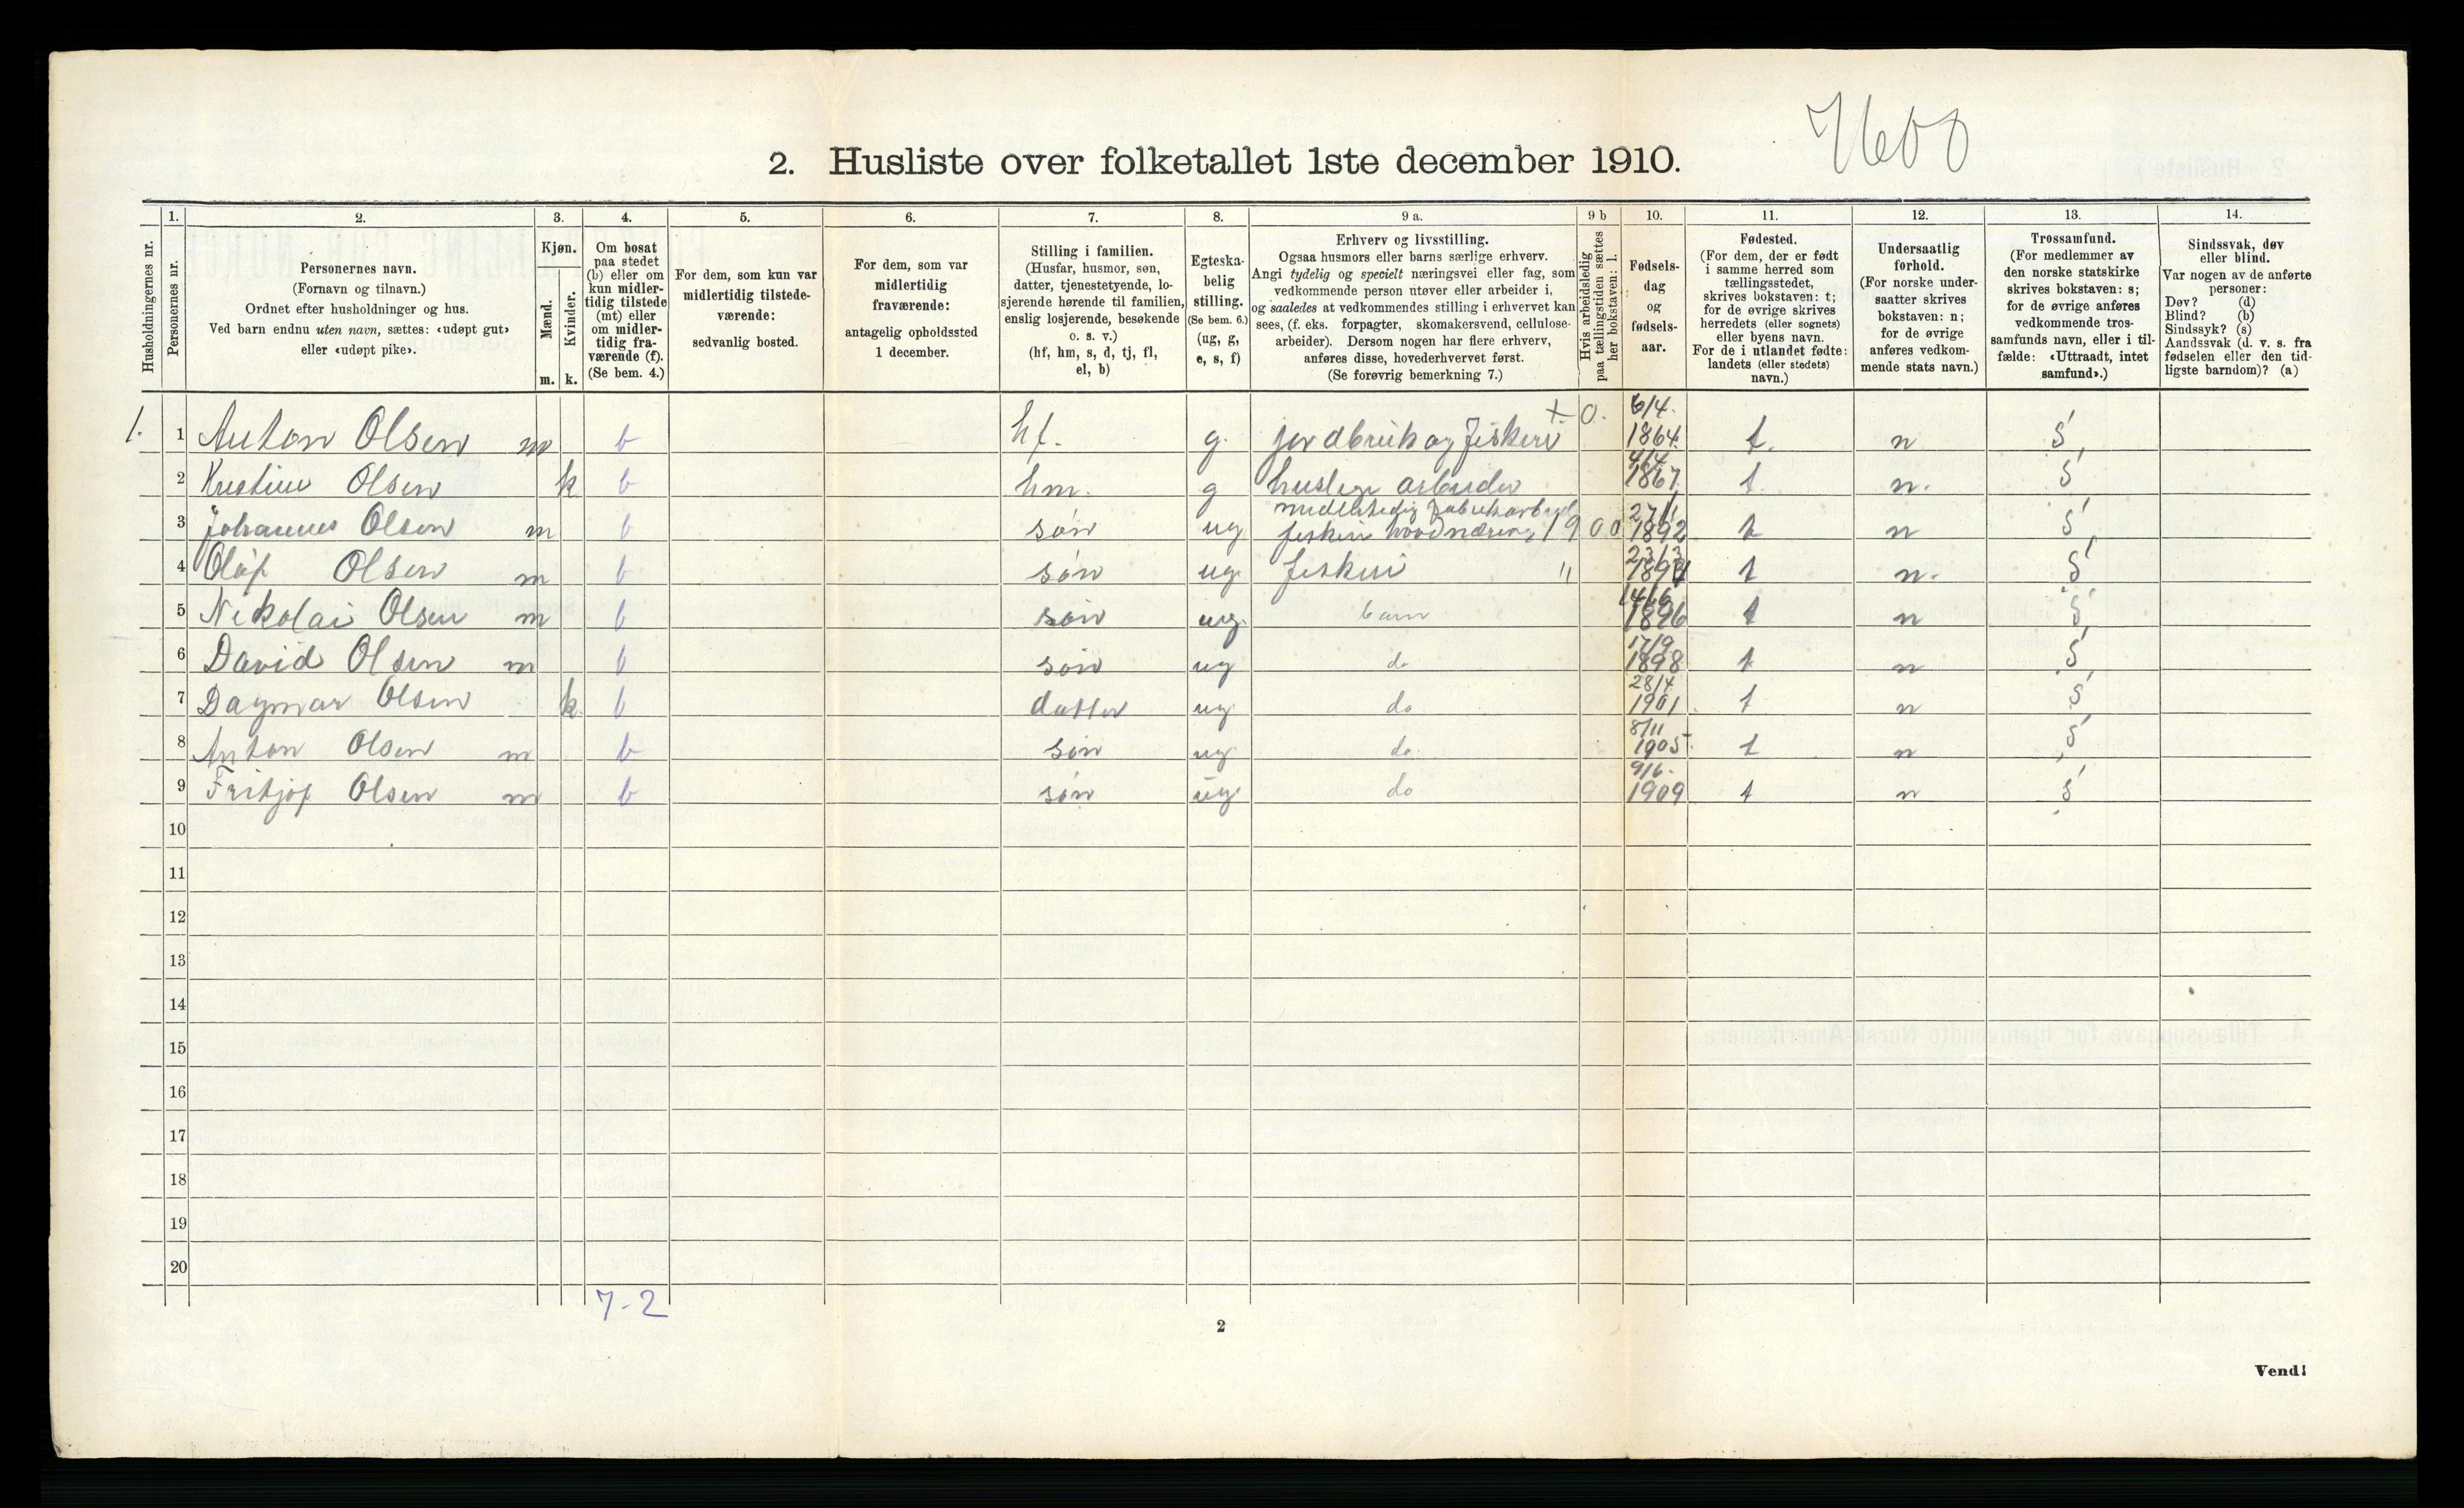 7600
2. Husliste over folketallet 1ste december 1910.
Husholdningernes nr.
1.
Personernes nr.
2.
Personernes navn.
(Fornavn og tilnavn.)
Ordnet efter husholdninger og hus.
Ved barn endnu uten navn, sættes: «udøpt gut»
eller «udøpt pike».
3.
Kjøn.
Mænd.
Kvinder.
m. k.
4.
Om bosat
paa stedet
(b) eller om
kun midler-
tidig tilstede
(mt) eller
om midler-
tidig fra-
værende (f).
(Se bem. 4.)
5.
For dem, som kun var
midlertidig tilstede-
værende:
sedvanlig bosted.
6.
For dem, som var
midlertidig
fraværende:
antagelig opholdssted
1 december.
7.
Stilling i familien.
(Husfar, husmor, søn,
datter, tjenestetyende, lo-
sjerende hørende til familien,
enslig losjerende, besøkende
o. s. v.)
(hf, hm, s, d, tj, fl,
el, b)
8.
Egteska-
belig
stilling.
(Se bem. 6.)
(ug, g,
e, s, f)
9 a.
Erhverv og livsstilling.
Ogsaa husmors eller barns særlige erhverv.
Angi tydelig og specielt næringsvei eller fag, som
vedkommende person utøver eller arbeider i,
og saaledes at vedkommendes stilling i erhvervet kan
sees, (f. eks. forpagter, skomakersvend, cellulose-
arbeider). Dersom nogen har flere erhverv,
anføres disse, hovederhvervet først.
(Se forøvrig bemerkning 7.)
9 b
Hvis arbeidsledig
paa tællingstiden sættes
her bokstaven: l.
10.
Fødsels-
dag
og
fødsels-
aar.
11.
Fødested.
(For dem, der er født
i samme herred som
tællingsstedet,
skrives bokstaven: t;
for de øvrige skrives
herredets (eller sognets)
eller byens navn.
For de i utlandet fødte:
landets (eller stedets)
navn.)
12.
Undersaatlig
forhold.
(For norske under-
saatter skrives
bokstaven: n;
for de øvrige
anføres vedkom-
mende stats navn.)
13.
Trossamfund.
(For medlemmer av
den norske statskirke
skrives bokstaven: s;
for de øvrige anføres
vedkommende tros-
samfunds navn, eller i til-
fælde: «Uttraadt, intet
samfund».)
14.
Sindssvak, døv
eller blind.
Var nogen av de anførte
personer:
Døv? (d)
Blind? (b)
Sindssyk? (s)
Aandssvak (d. v. s. fra
fødselen eller den tid-
ligste barndom)? (a)
+ 0. 6/4.
1. 1 Anton Olsen m b hf. g. jordbruk og fiskeri 1864. t. n s
4/4
2 Kristine Olsen k b hm. g huslige arbeider 1867. t. n. s
midlertidig fabrikarbeid 27/1
3 Johannes Olsen m b søn ug fiskeri hovednæring 1900 1892 t n s
23/3
4 Olaf Olsen m b søn ug. fiskeri " 1894 t n. s
14/6
5 Nikolai Olsen m b søn ug. barn 1896 t n s
17/9
6 David Olsen m b søn ug do 1898 t n s
28/4
7 Dagmar Olsen k b datter ug. do 1901. t n s
8/11
8 Anton Olsen m b søn ug. do. 1905. t n s
9/6.
9 Fritjof Olsen m b søn ug. do 1909 t n s
10
11
12
13
14
15
16
17
18
19
20
7-2
2
Vend!